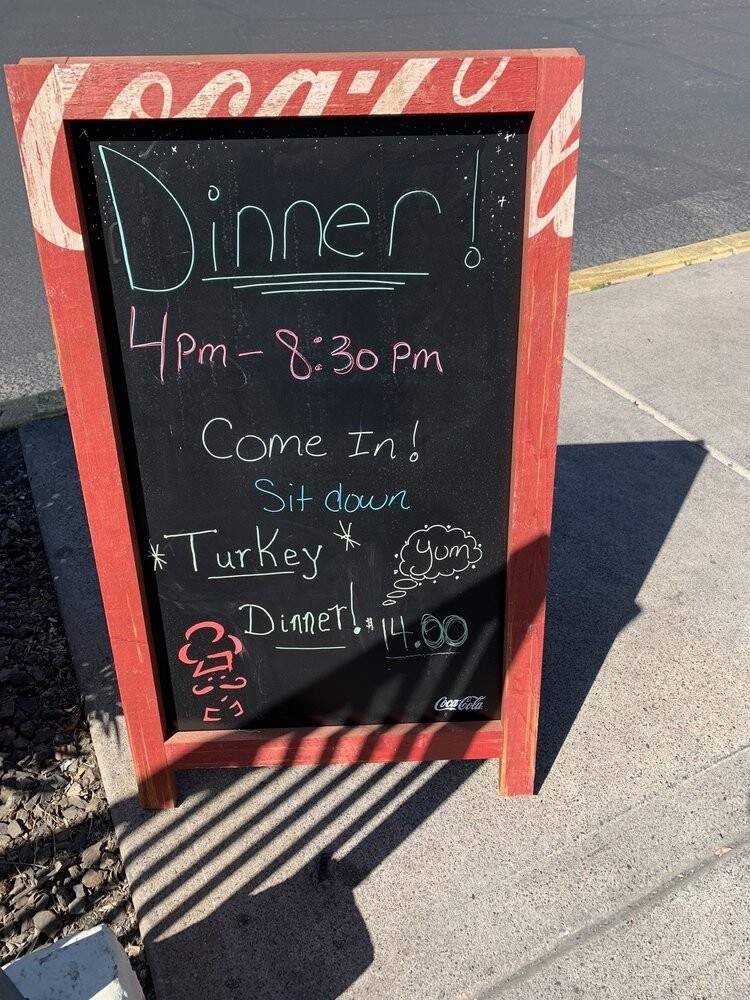 Coca-Cola
Dinner!
4pm - 8:30 pm
Come In!
Sit down
*Turkey*
Yum
Dinner! $14.00
Coca-Cola